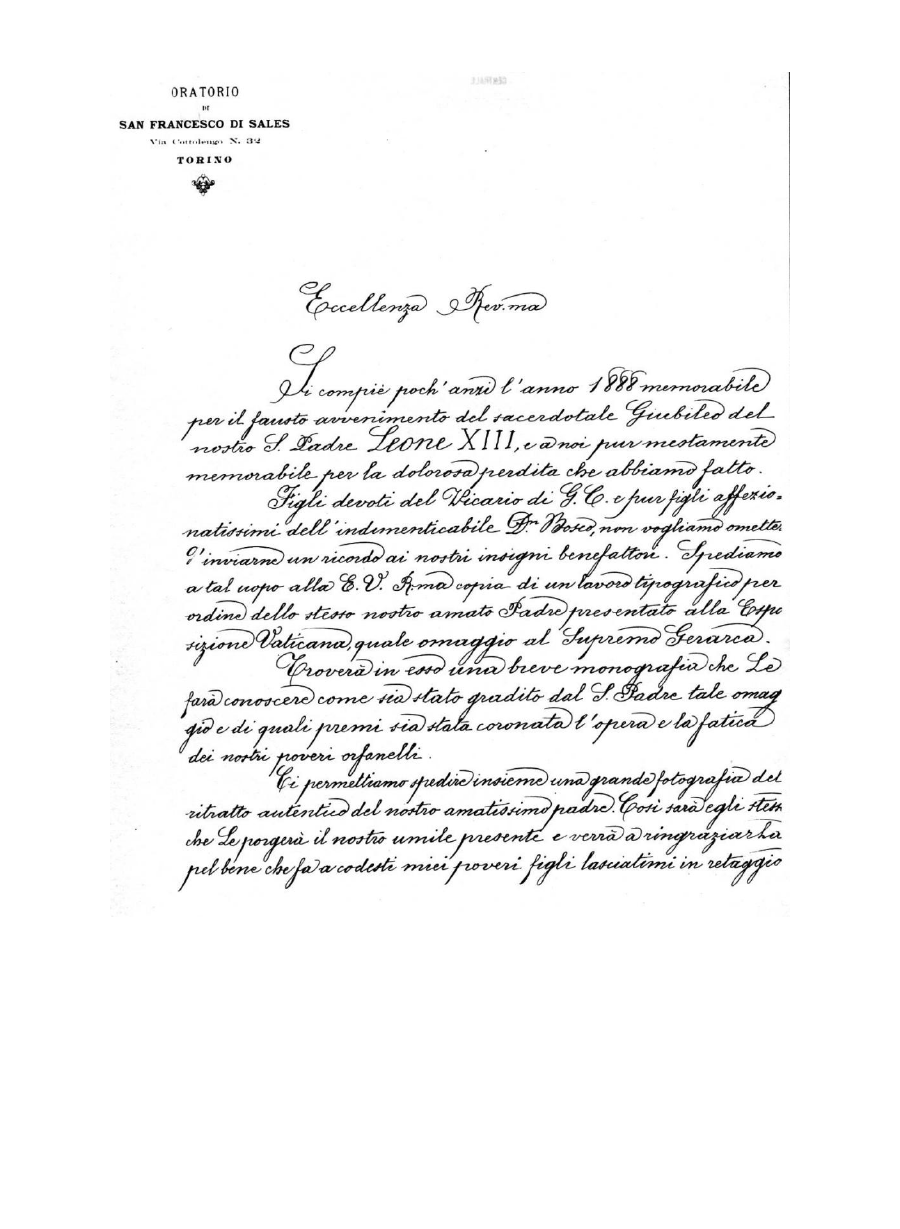 ORATORIO
DI
SAN FRANCESCO DI SALES
Via Cottolengo N. 32
TORINO
Eccellenza Rev.ma
Si compiè poch'anzi l'anno 1888 memorabile
per il fausto avvenimento del sacerdotale Giubileo del
nostro S. Padre Leone XIII, e a noi pur mestamente
memorabile per la dolorosa perdita che abbiamo fatto.
Figli devoti del Vicario di G. C. e pur figli affezio=
natissimi dell'indimenticabile Dn Bosco, non vogliamo omettere
d'inviarne un ricordo ai nostri insigni benefattori. Spediamo
a tal uopo alla E. V. R.ma copia di un lavoro tipografico per
ordine dello stesso nostro amato Padre presentato alla Espo
sizione Vaticana, quale omaggio al Supremo Gerarca.
Troverà in esso una breve monografia che Le
farà conoscere come sia stato gradito dal S. Padre tale omag
gio e di quali premi sia stata coronata l'opera e la fatica
dei nostri poveri orfanelli.
Ci permettiamo spedire insieme una grande fotografia del
ritratto autentico del nostro amatissimo padre. Così sarà egli stesso
che Le porgerà il nostro umile presente e verrà a ringraziarLa
pel bene che fa a codesti miei poveri figli lasciatimi in retaggio